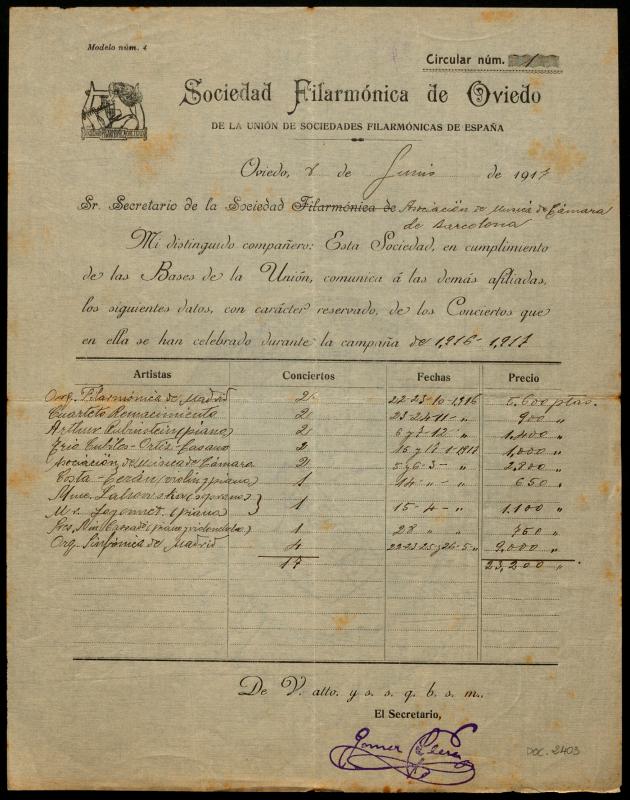 Modelo núm. 4
Circular núm. 1
Sociedad Filarmónica de Oviedo
DE LA UNIÓN DE SOCIEDADES FILARMÓNICAS DE ESPAÑA
Oviedo, 8 de Junio de 1917
Sr. Secretario de la Sociedad Filarmónica de Asociación de Musica de Cámara
de Barcelona
Mi distinguido compañero: Esta Sociedad, en cumplimiento
de las Bases de la Unión, comunica á las demás afiliadas,
los siguientes datos, con carácter reservado, de los Conciertos que
en ella se han celebrado durante la campaña de 1,916-1,917
Artistas Conciertos Fechas Precio
Orq. Filarmónica de Madrid 2 22-23-10-1916 5.600 ptas.
Cuarteto Renacimiento 2 23-24-11- " 900 "
Arthur Rubinstein (piano) 2 6 y 7-12- " 1,400 "
Trio Cubiles-Ortiz-Casano 2 15 y 16-1-1917 1,000 "
Asociación de Música de Cámara 2 5 y 6-3- " 2,800 "
Costa-Terán (violin y piano) 1 14- " - " 650 "
Mme. (soprano)
Mr. (piano) } 1 15-4- " 1.100 "
(piano y violoncelo) 1 28 " " 750 "
Orq. Sinfónica de Madrid 4 22-23-25 y 26-5- " 9,000 "
17 23,200 "
De V. atto. y s. s. q. b. s. m.,
El Secretario,
DOC. 2403